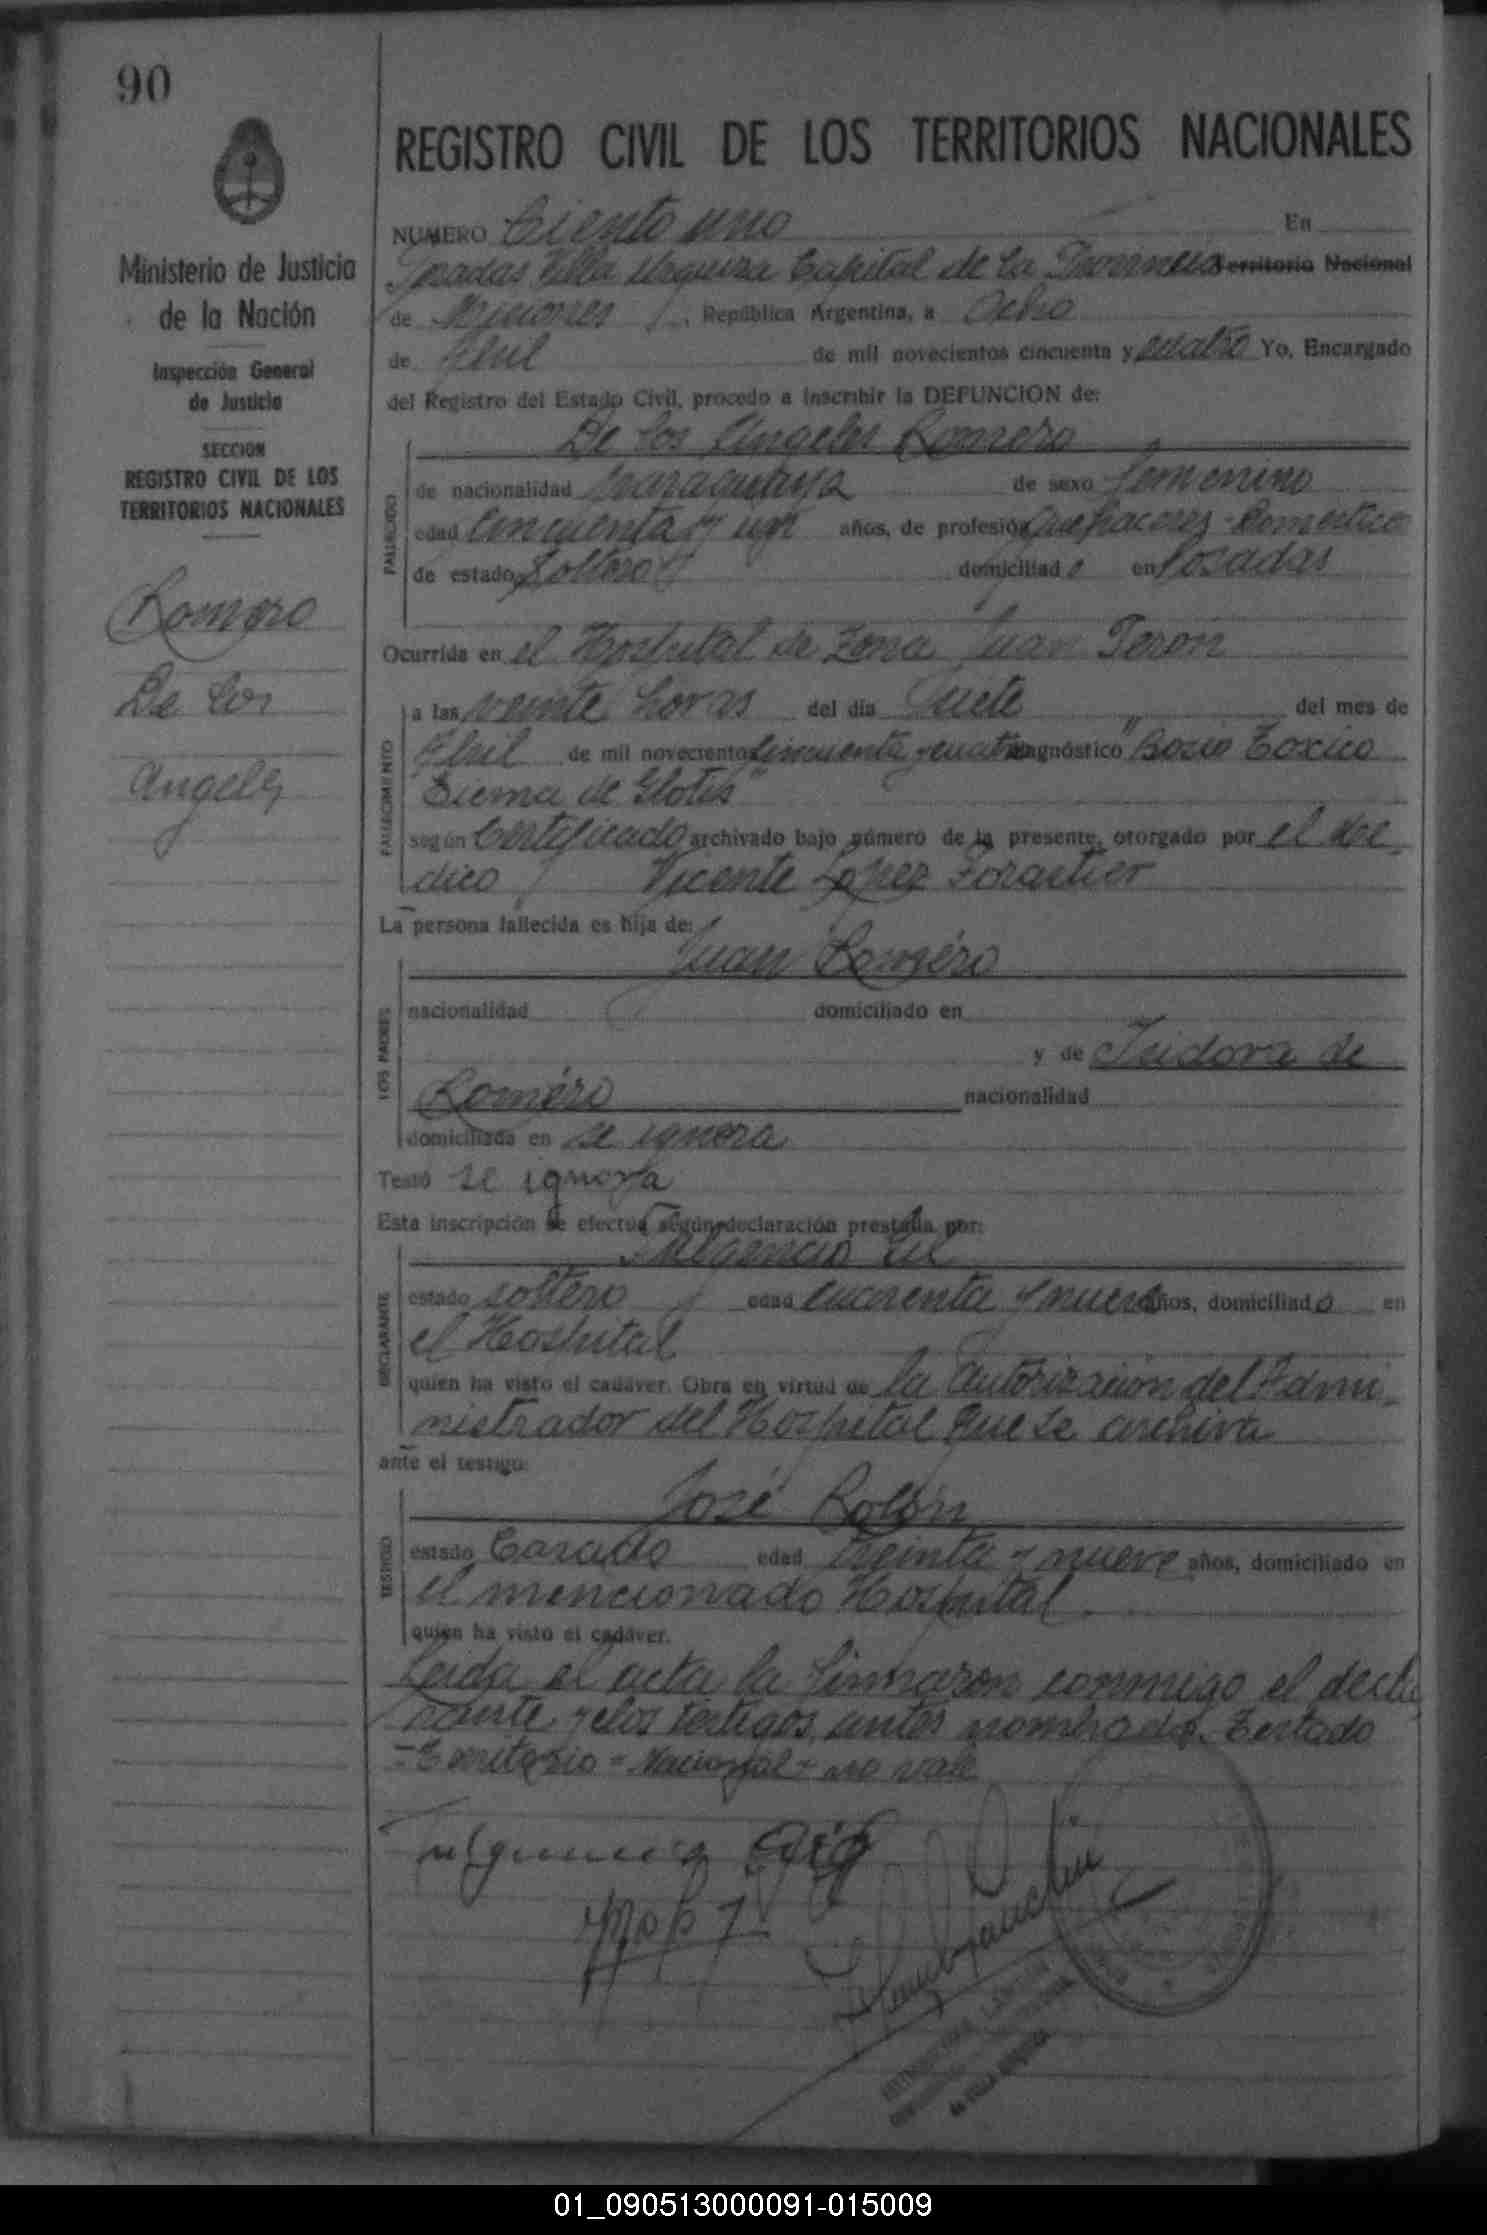 90
REGISTRO CIVIL DE LOS TERRITORIOS NACIONALES
Ministerio de Justicia
de la Nación
Inspección General
de Justicia
SECCION
REGISTRO CIVIL DE LOS
TERRITORIOS NACIONALES
Romero
De los
Angeles
NUMERO Ciento uno En
Posadas Villa Urquiza Capital de la Provincia Territorio Nacional
de Misiones, República Argentina, a Ocho
de Abril de mil novecientos cincuenta y cuatro Yo, Encargado
del Registro del Estado Civil, procedo a inscribir la DEFUNCION de:
De los Angeles Romero
FALLECIDO
de nacionalidad Paraguaya de sexo femenino
edad Cincuenta y un años, de profesión Quehaceres Domestico
de estado Soltero domiciliado en Posadas
Ocurrida en el Hospital de Zona Juan Perón
FALLECIMIENTO
a las veinte horas del día siete del mes de
Abril de mil novecientos cincuenta y cuatro diagnóstico "Bosio Toxico
Eiema de Glotis"
según Certificado archivado bajo número de la presente, otorgado por el Mé-
dico Vicente Lopez Forastier
La persona fallecida es hija de:
Juan Roméro
LOS PADRES
nacionalidad domiciliado en
y de Isidora de
Roméro nacionalidad
domiciliada en se ignora
Testó se ignora
Esta inscripción se efectúa según declaración prestada por:
Fulgencio Gil
DECLARANTE
estado soltero edad cuarenta y nueve años, domiciliado en
el Hospital
quien ha visto el cadáver. Obra en virtud de la autorización del Admi-
nistrador del Hospital que se archiva
ante el testigo:
José Rolón
TESTIGO
estado Casado edad treinta y nueve años, domiciliado en
el mencionado Hospital
quien ha visto el cadáver.
Leida el acta la firmaron conmigo el decla
rante y los testigos antes nombrados. Testado
=Territorio = Nacional = no vale
01_090513000091-015009